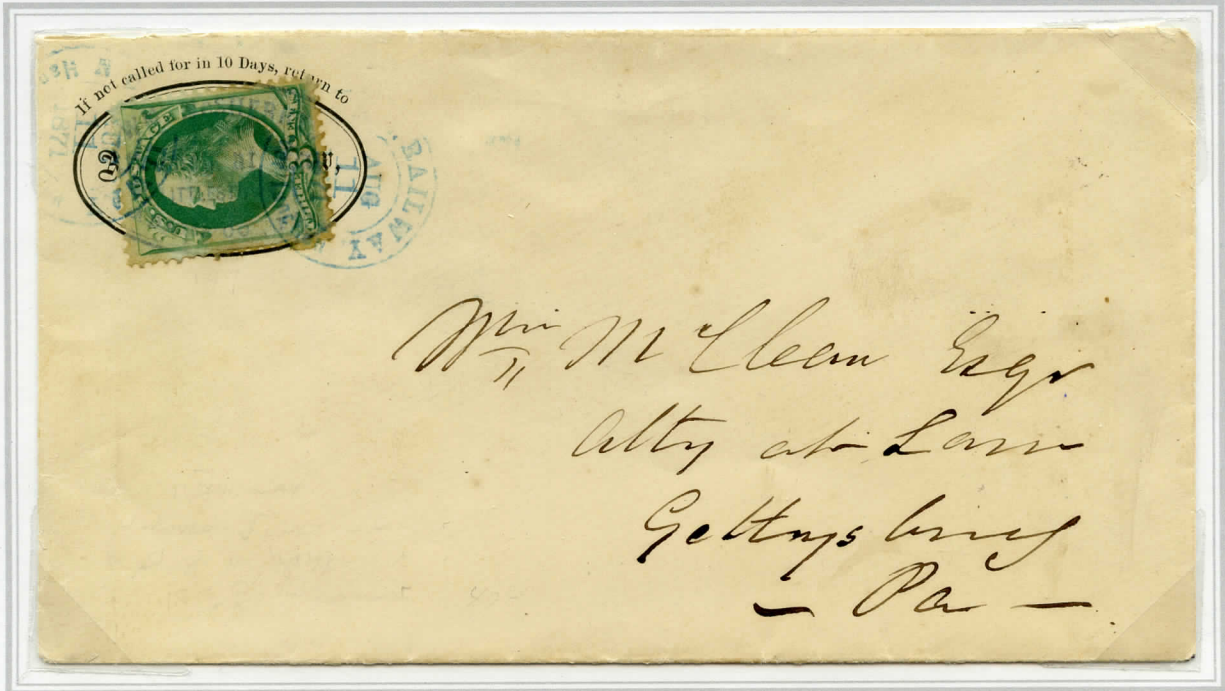 If not called for in 10 Days, return to
RAILWAY
AUG
11
1871
Wm McClean Esqr
Atty at Law
Gettysburg
— Pa —